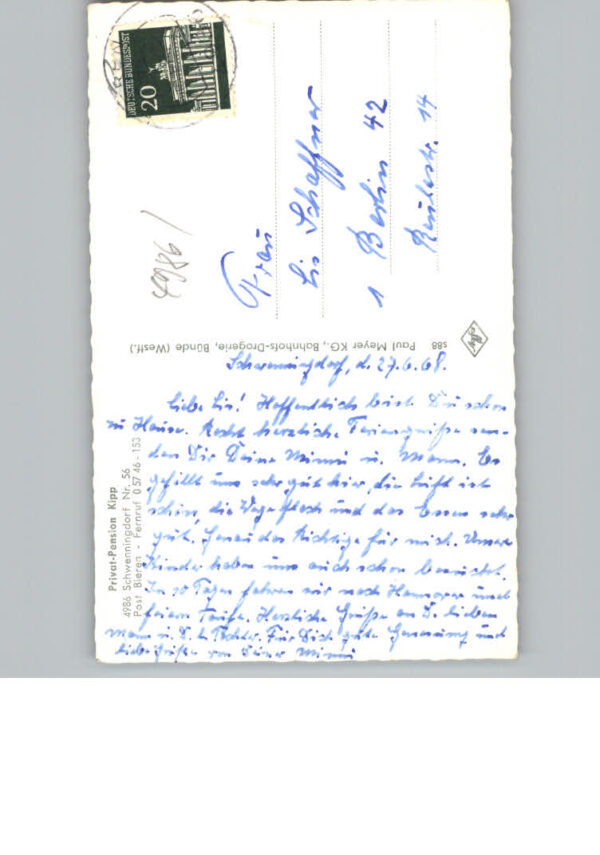 DEUTSCHE BUNDESPOST
20
4986 /
Frau
Lis Schaffner
1 Berlin 42
14
s88 Paul Meyer KG., Bahnhofs-Drogerie, Bünde (Westf.)
Privat-Pension Kipp
4986 Schwenningdorf Nr. 56
Post Bieren - Fernruf 0 57 46 - 153
Schwenningdorf, d. 27.6.68.
Liebe Lis! Hoffentlich bist Du schon
zu Hause. Recht herzliche Feriengrüße sen-
den Dir Deine Mimi u. Mann. Es
gefällt uns sehr gut hier, die Luft ist
schön, die Wege flach und das Essen sehr
gut. Genau das Richtige für mich. Unsere
Kinder haben uns auch schon besucht.
In 10 Tagen fahren wir nach Hannover und
feiern Taufe. Herzliche Grüße an D. lieben
Mann u. D. l. Tochter. Für Dich gute Genesung und
liebe Grüße von Deiner Mimi